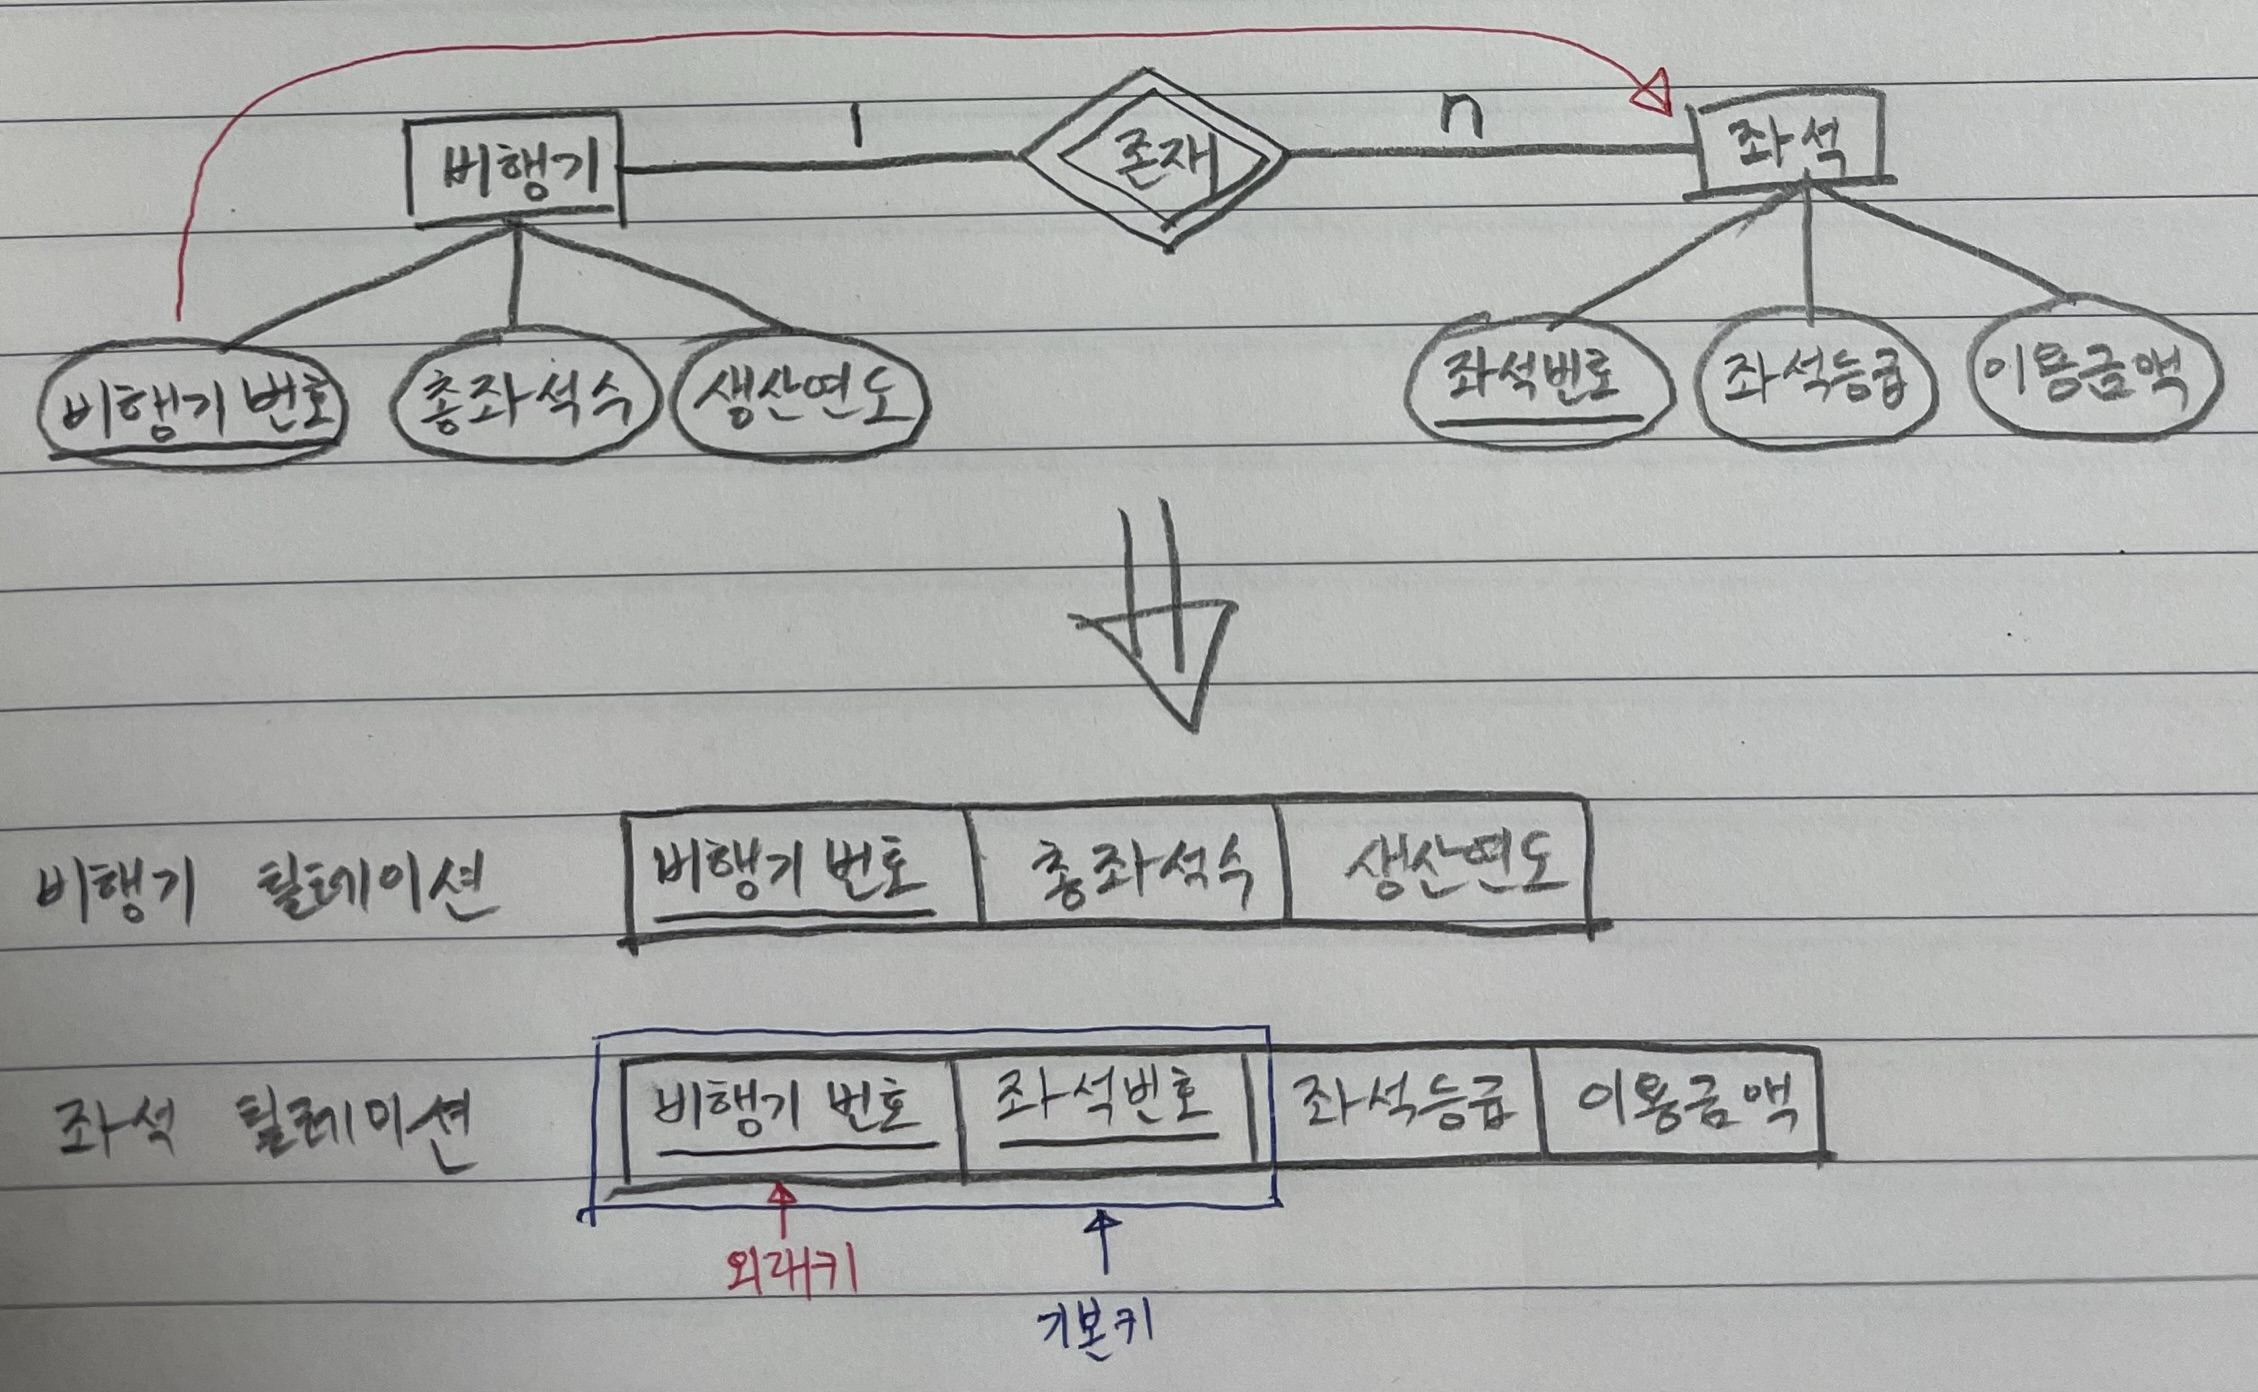 1 n
비행기 존재 좌석
비행기 번호 총좌석수 생산연도 좌석번호 좌석등급 이용금액
비행기 릴레이션 비행기 번호 총좌석수 생산연도
좌석 릴레이션 비행기 번호 좌석번호 좌석등급 이용금액
외래키
기본키